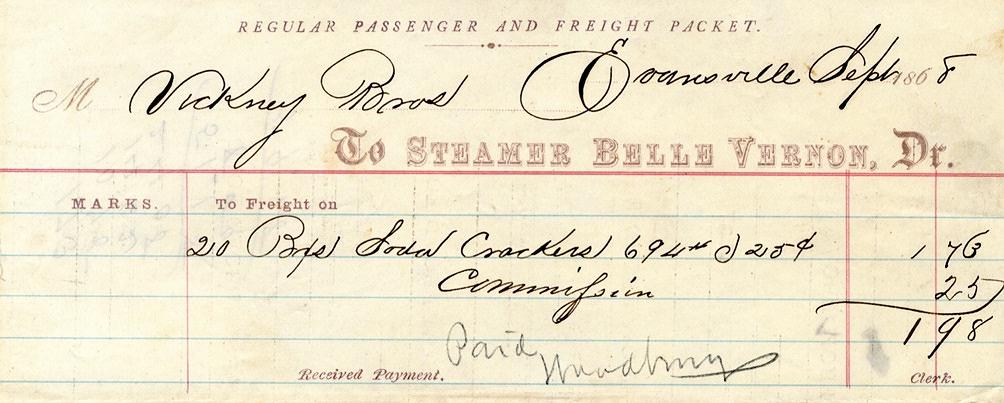 REGULAR PASSENGER AND FREIGHT PACKET.
M Vickney Bros Evansville Sept 1868
To STEAMER BELLE VERNON, Dr.
MARKS. To Freight on
20 Bxs Soda Crackers 694# @ 25¢ 1 73
Commission 25
1 98
Paid Woodbury
Received Payment. Clerk.